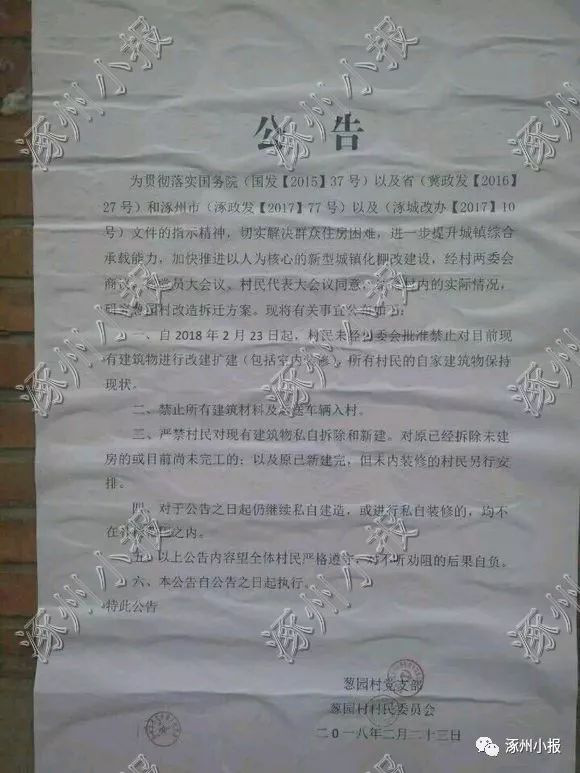 公 告
为贯彻落实国务院（国发【2015】37 号）以及省（冀政发【2016】
27 号）和涿州市（涿政发【2017】77 号）以及（涿城改办【2017】10
号）文件的指示精神，切实解决群众住房困难，进一步提升城镇综合
承载能力，加快推进以人为核心的新型城镇化棚改建设，经村两委会
商议、党员大会议、村民代表大会议同意，村内的实际情况，
葱园村改造拆迁方案。现将有关事宜公告如下：
一、自 2018 年 2 月 23 日起，村民未经村委会批准禁止对目前现
有建筑物进行改建扩建（包括室内装修），所有村民的自家建筑物保持
现状。
二、禁止所有建筑材料及运送车辆入村。
三、严禁村民对现有建筑物私自拆除和新建。对原已经拆除未建
房的或目前尚未完工的；以及原已新建完，但未内装修的村民另行安
排。
四、对于公告之日起仍继续私自建造，或进行私自装修的，均不
在之内。
五、以上公告内容望全体村民严格遵守，对不听劝阻的后果自负。
六、本公告自公告之日起执行。
特此公告
葱园村党支部
葱园村村民委员会
二〇一八年二月二十三日
涿州小报